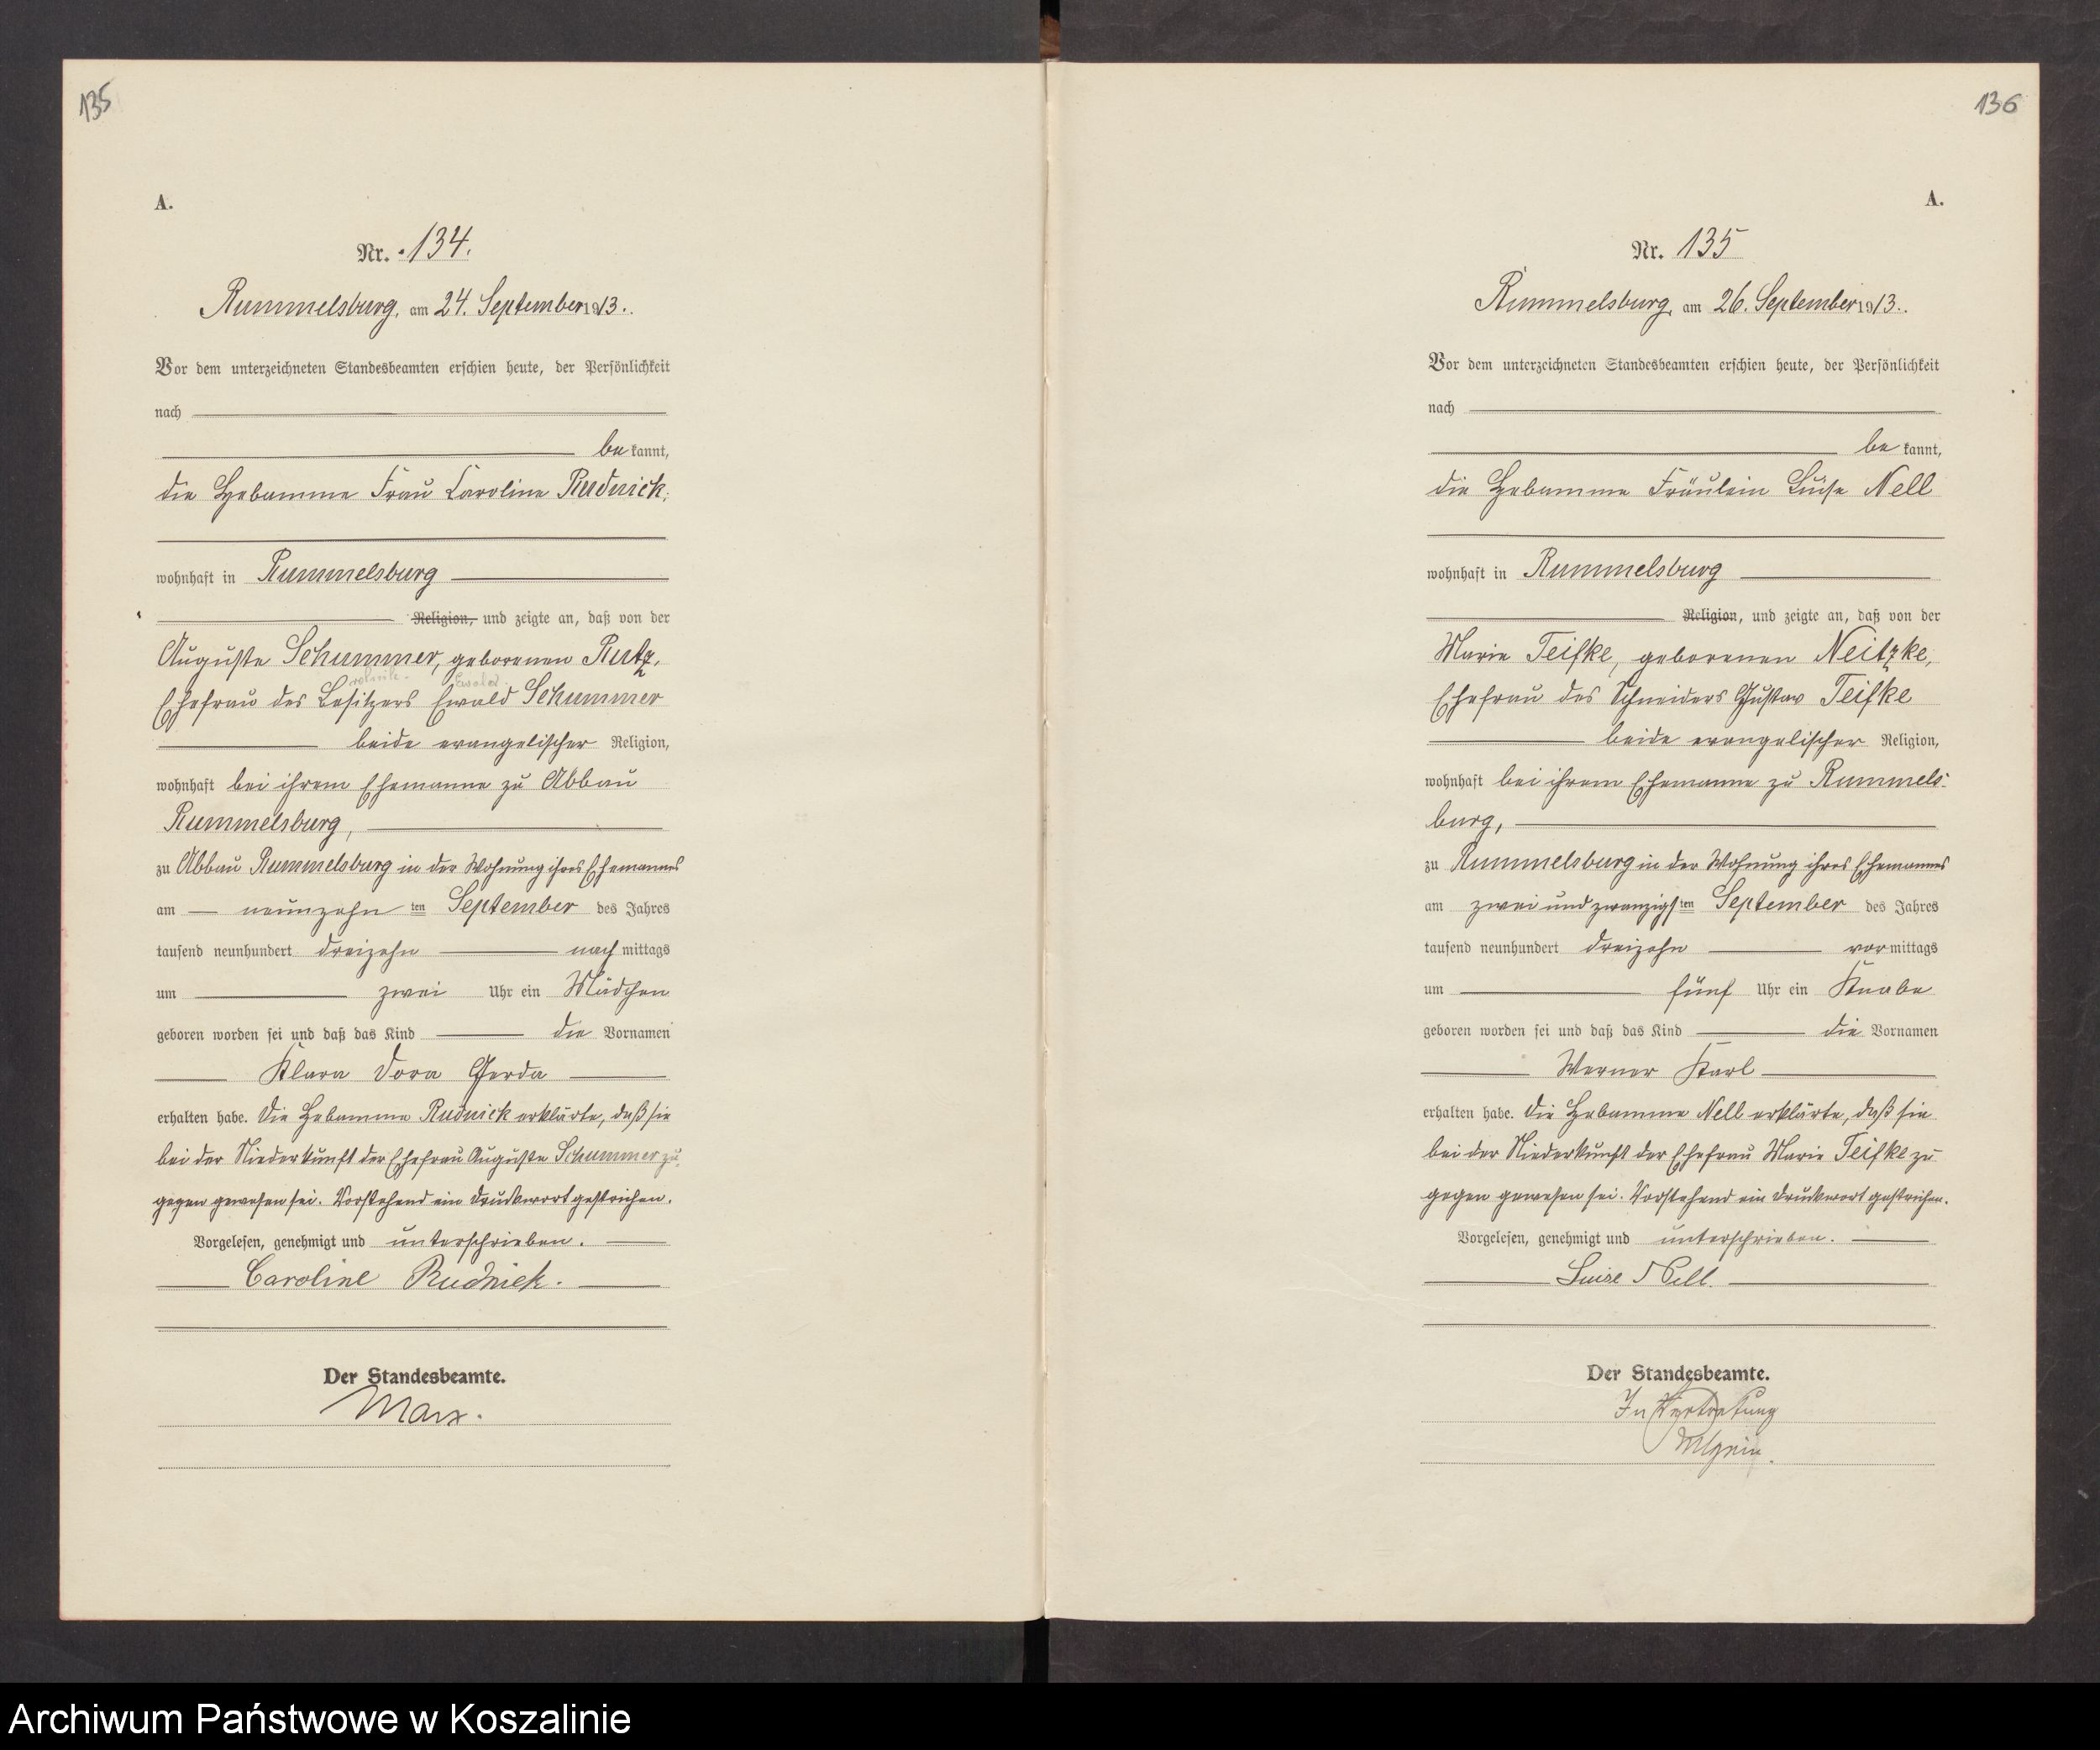 135
A.
Nr. 134.
Rummelsburg, am 24. September 1913.
Vor dem unterzeichneten Standesbeamten erschien heute, der Persönlichkeit
nach
be kannt,
die Hebamme Frau Caroline Rudnick,
wohnhaft in Rummelsburg
Religion, und zeigte an, daß von der
Auguste Schummer, geborenen Rutz,
Ewald
Ehefrau des Besitzers Ewald Schummer
beide evangelischer Religion,
wohnhaft bei ihrem Ehemanne zu Abbau
Rummelsburg,
zu Abbau Rummelsburg in der Wohnung ihres Ehemannes
am neunzehn ten September des Jahres
tausend neunhundert dreizehn nach mittags
um zwei Uhr ein Mädchen
geboren worden sei und daß das Kind die Vornamen
Klara Dora Gerda
erhalten habe. Die Hebamme Rudnick erklärte, daß sie
bei der Niederkunft der Ehefrau Auguste Schummer zu
gegen gewesen sei. Vorstehend ein Druckwort gestrichen.
Vorgelesen, genehmigt und unterschrieben.
Caroline Rudnick.
Der Standesbeamte.
Marx.
136
A.
Nr. 135
Rummelsburg, am 26. September 1913.
Vor dem unterzeichneten Standesbeamten erschien heute, der Persönlichkeit
nach
be kannt,
die Hebamme Fräulein Luise Nell
wohnhaft in Rummelsburg
Religion, und zeigte an, daß von der
Marie Teifke, geborenen Neitzke,
Ehefrau des Schneiders Gustav Teifke
beide evangelischer Religion,
wohnhaft bei ihrem Ehemanne zu Rummels-
burg,
zu Rummelsburg in der Wohnung ihres Ehemannes
am zwei und zwanzigsten September des Jahres
tausend neunhundert dreizehn vormittags
um fünf Uhr ein Knabe
geboren worden sei und daß das Kind die Vornamen
Werner Karl
erhalten habe. Die Hebamme Nell erklärte, daß sie
bei der Niederkunft der Ehefrau Marie Teifke zu
gegen gewesen sei. Vorstehend ein Druckwort gestrichen.
Vorgelesen, genehmigt und unterschrieben.
Luise Nell.
Der Standesbeamte.
In Vertretung
Archiwum Państwowe w Koszalinie